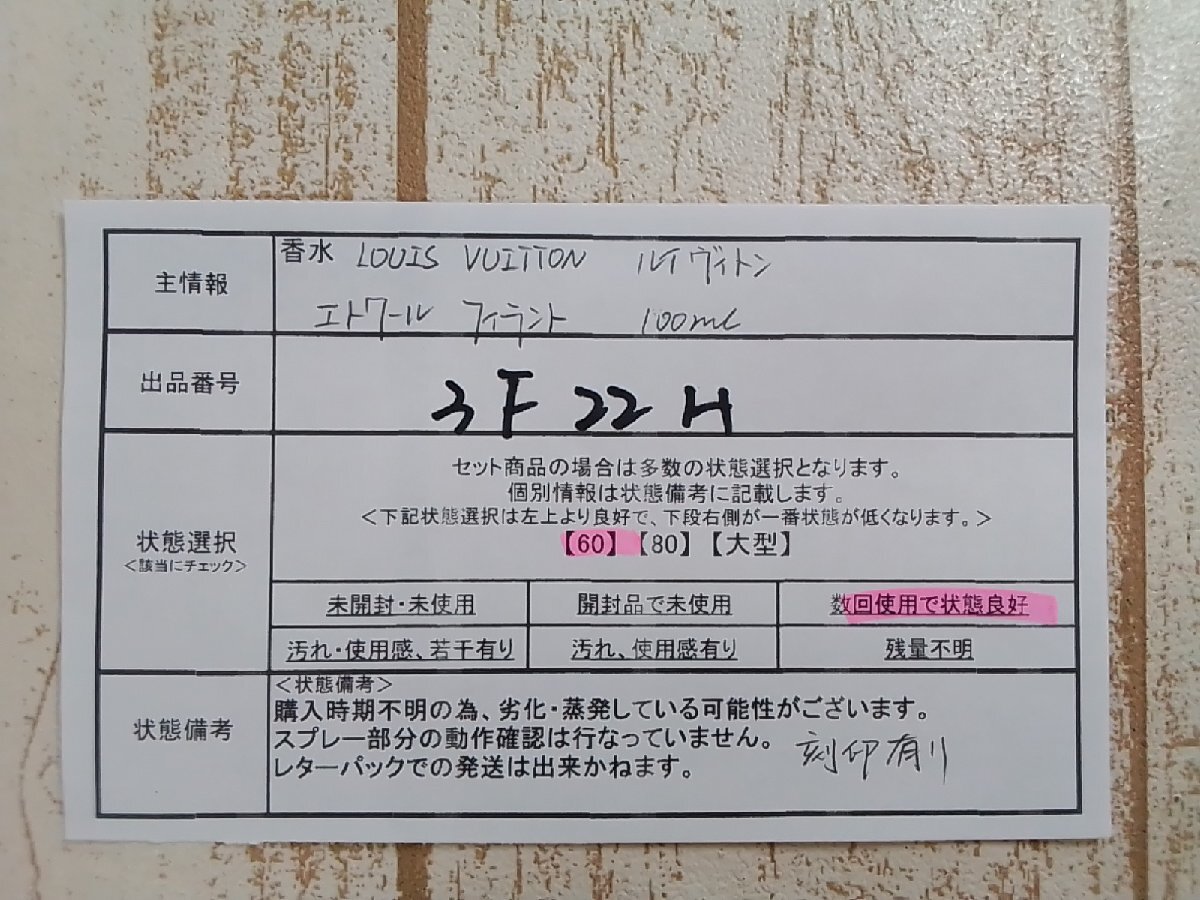 主情報
香水 LOUIS VUITTON ルイヴィトン
エトワール フィラント 100ml
出品番号
3F22H
状態選択
<該当にチェック>
セット商品の場合は多数の状態選択となります。
個別情報は状態備考に記載します。
<下記状態選択は左上より良好で、下段右側が一番状態が低くなります。>
【60】【80】【大型】
未開封・未使用 開封品で未使用 数回使用で状態良好
汚れ・使用感、若干有り 汚れ、使用感有り 残量不明
状態備考
<状態備考>
購入時期不明の為、劣化・蒸発している可能性がございます。
スプレー部分の動作確認は行なっていません。
レターパックでの発送は出来かねます。
刻印有り